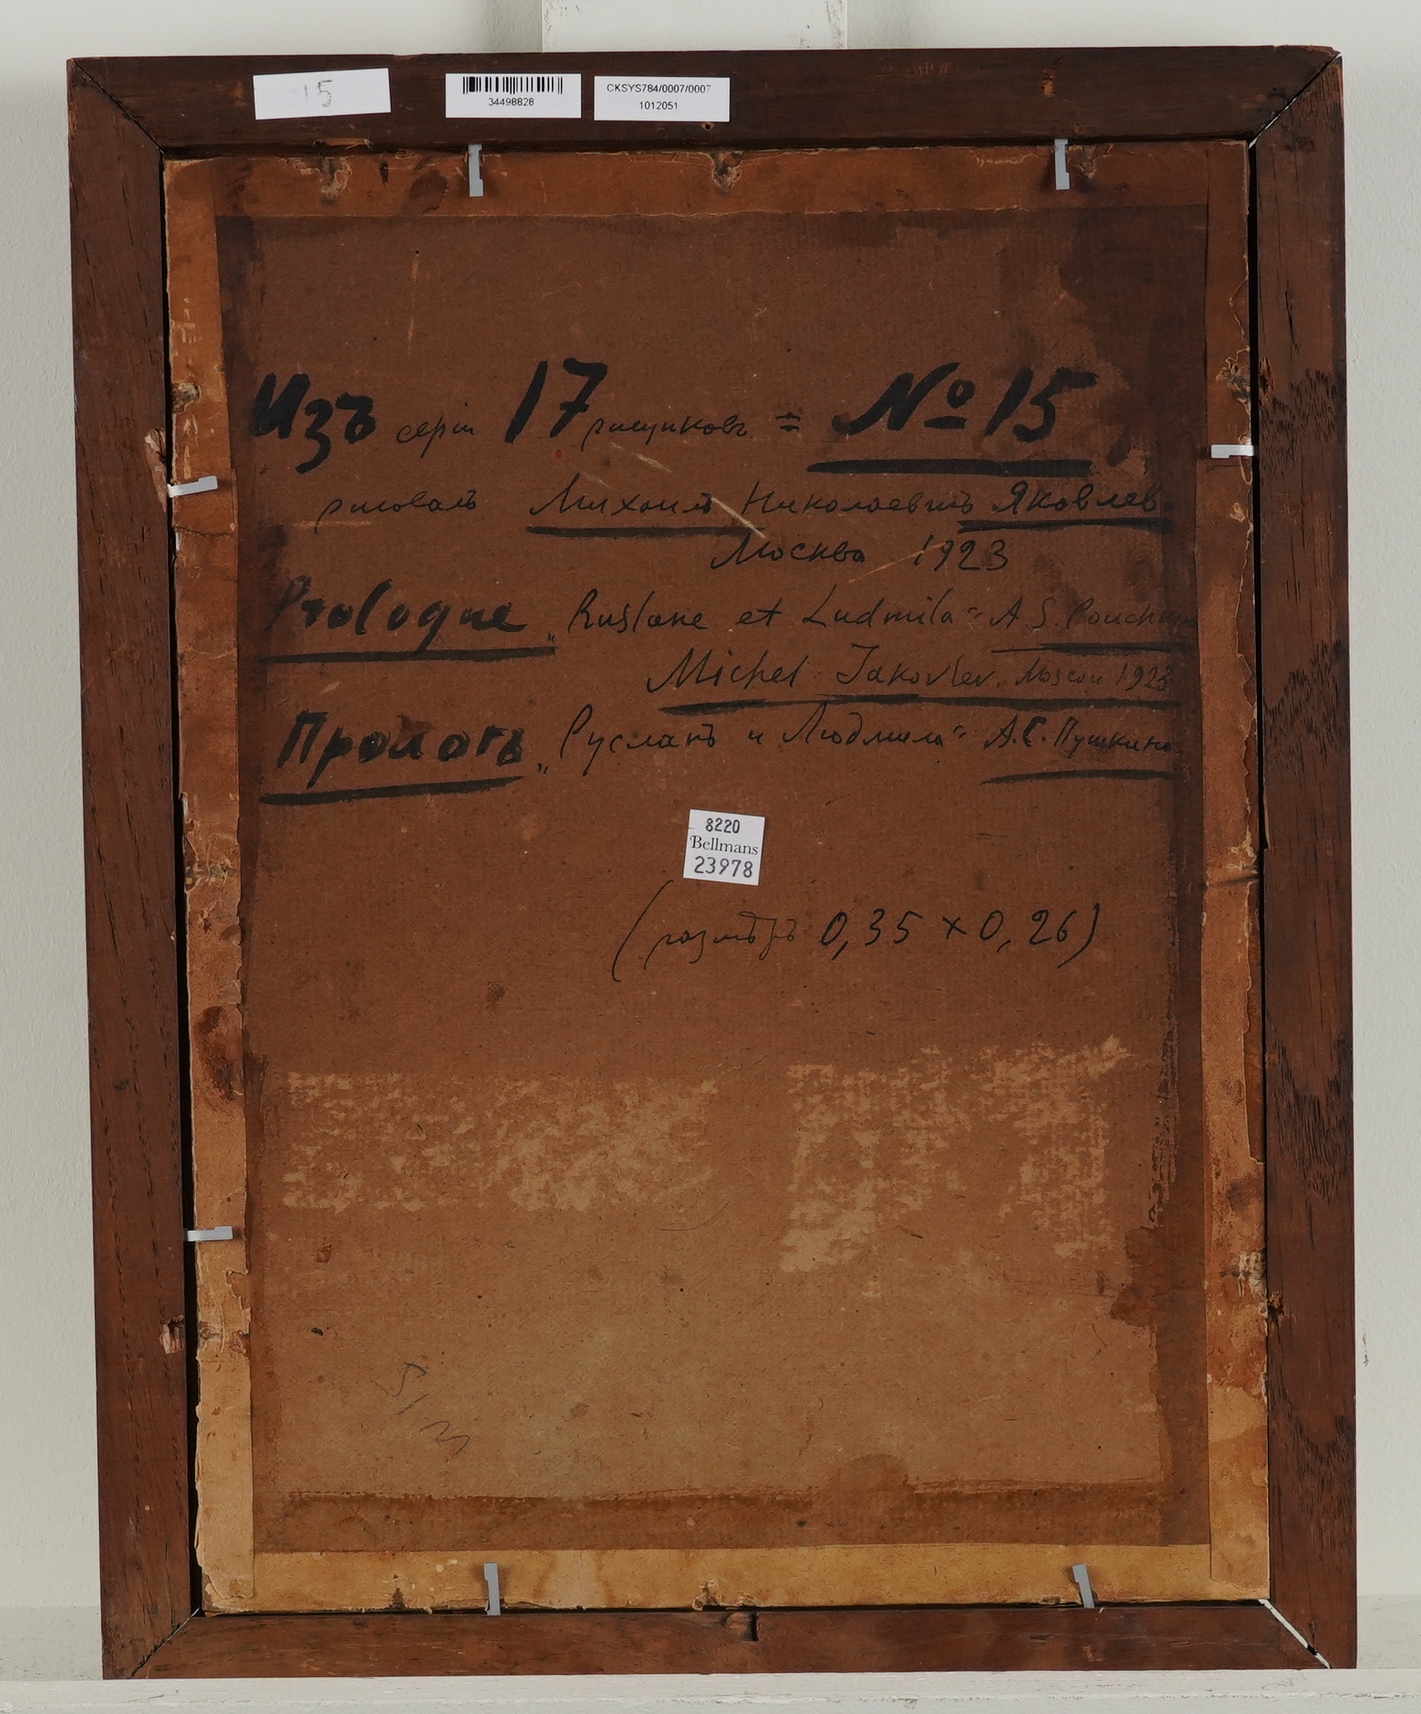 15
34498828
CKSYS784/0007/0007
1012051
Изъ серіи 17 рисунковъ = № 15
рисовалъ Михаилъ Николаевичъ Яковлевъ
Москва 1923
Prologue „Ruslane et Ludmila“ A. S. Pouchkin
Michel Jakovlev. Moscou 1923
Прологъ „Русланъ и Людмила“ А.С. Пушкина
8220
Bellmans
23978
(размѣръ 0,35 × 0,26)